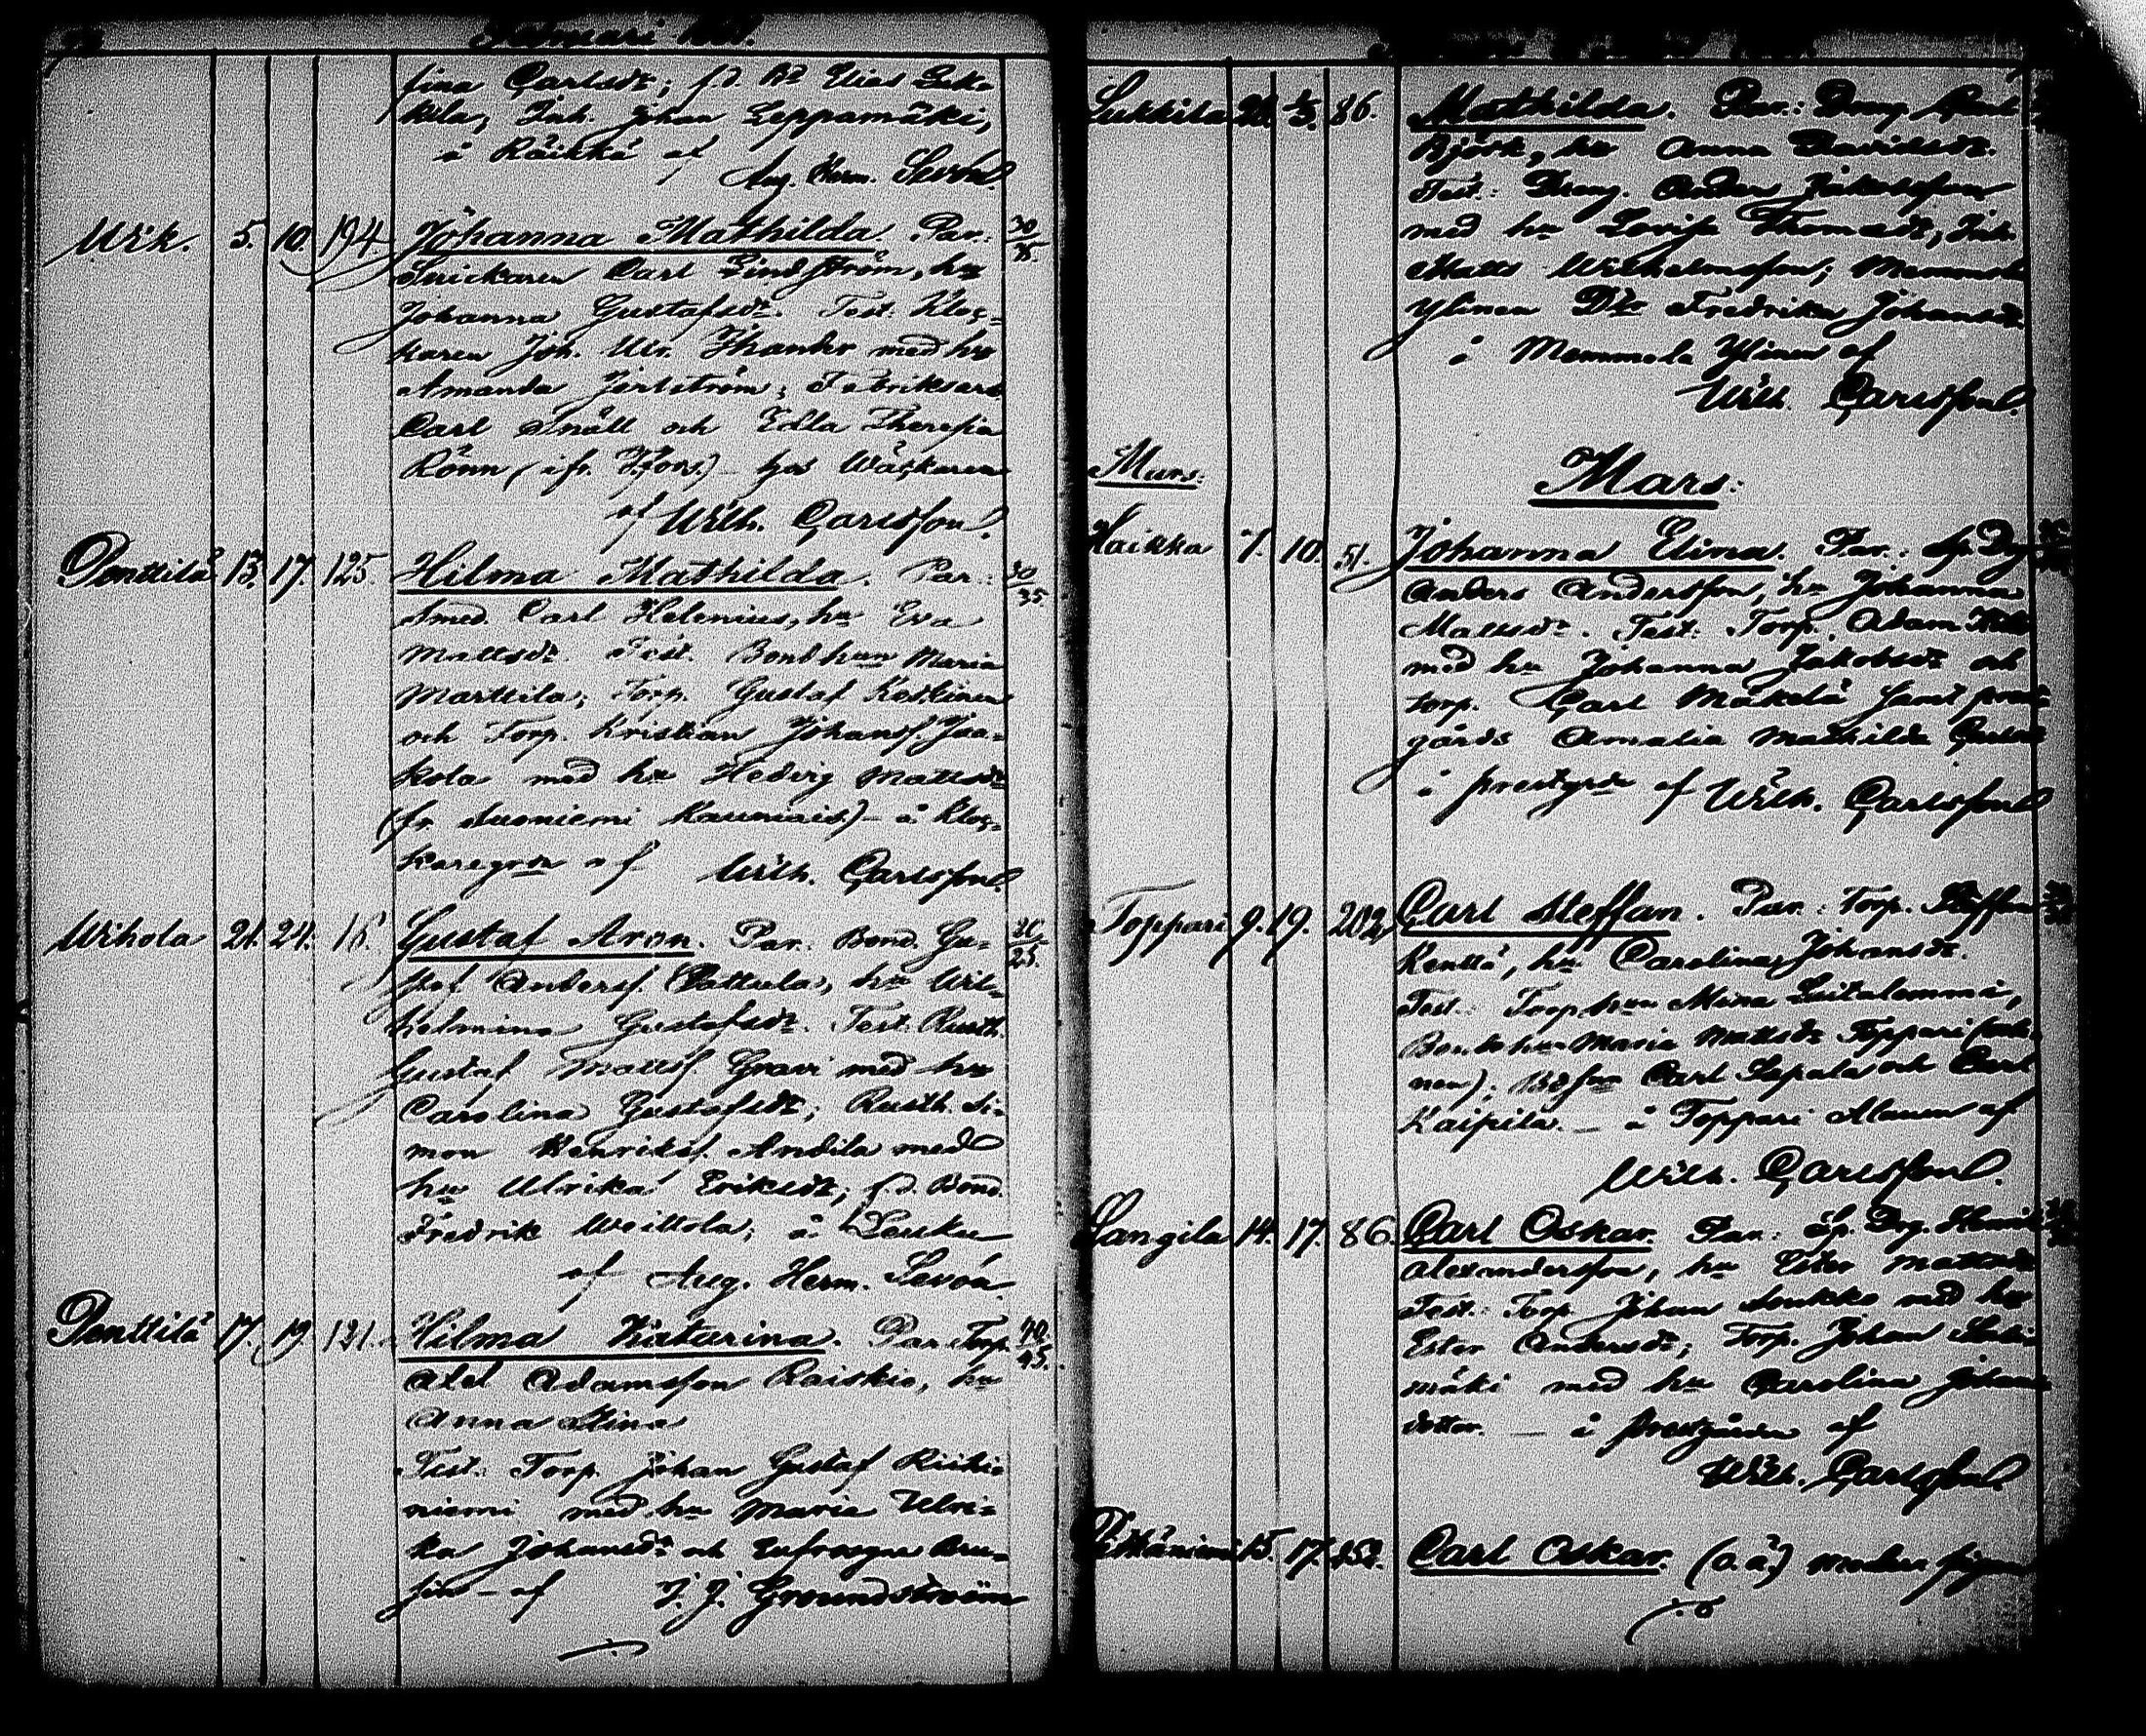 Februari
fina Carlsdr; f.d. Bd Elias
kila, Inh. Johan Leppämäki,
å Räikkä af
Aug. Herm. Levón.
Wik. 5. 10. 194. Johanna Mathilda. Par.: 30/35.
Snickaren Carl Lindström, hu
Johanna Gustafsdr. Test. Kloc-
karen Joh. Wr. Thander med hu
Amanda ; Fabriksarb.
Carl Snäll och Edla Theresia
Rönn (ifr. H:fors) – hos Wäckaren
af Wilh. Carlsson.
Penttilä 13. 17. 125. Hilma Mathilda. Par.: 30/35.
Smed. Carl Helenius, hu Eva
Mattsdr. Test. Bondhun Maria
Marttila; Torp. Gustaf Koskinen
och Torp. Kristian Johanss. Jaa-
kola med hu Hedvig Mattsdr
(fr. Suoniemi Kauniais) – å kloc-
karegrdn af Wilh. Carlsson.
Wihola 21. 24. 16. Gustaf Aron. Par. Bond. Gu- 20/25.
staf Anderss. Pattula, hu Wil-
helmina Gustafsdr. Test. Rusth.
Gustaf Matts. Gravi med hu
Carolina Gustafsdr; Rusth. Si-
mon Henrikss. Andila med
hu Ulrika Eriksdr; f.d. Bond.
Fredrik Weittola; å Leuku
af Aug. Herm. Levón.
Penttilä 17. 19. 121. Hilma Katarina. Par. Torp. 40/45.
Axel Adamsson Raiskio, hu
Anna Stina
Test. Torp. Johan Gustaf
niemi med hu Maria Ulri-
ka Johansdr och Eufrosyne Bru-
sin – af J. J. Groundstroem
Sukkila 86. Mathilda. Par.: Dreng
Björk, hu Anna Davidsdr.
Test.: Dreng. Anders Jakobsson
med hu Lovisa Thomasdr, Inh.
Matts Wilhelmsson; Memmola
Ylinen Dtr Fredrika Johansdr.
i Memmola Ylinen af
Wilh. Carlsson.
Mars: Mars:
Haikka 7. 10. 51. Johanna Elina. Par.: Sp. Drg
Anders Andersson, hu Johanna
Mattsdr. Test.: Torp. Adam
med hu Johanna Jakobsdr och
torp. Carl Mäkelä samt prest-
gårds Amalia Mathilda Carlsdr
i prestgrdn af Wilh. Carlsson
Toppari 9. 19. 202. Carl Steffan. Par.: Torp. Steffan
Kenttä, hu Carolina Johansdr.
Test.: Torphun Mina
Bondehun Maria Mattsdr Toppari
nen); Bdson Carl Sapala och Carl
Kaipila. – å Toppari Alanen af
Wilh. Carlsson.
Sangila 14. 17. 86. Carl Oskar. Par.: Sp. Drg.
Alexandersson, hu Ester Mattsdr
Test.: Torp. Johan Soukko med hu
Ester Andersdr; Torp. Johan
mäki med hu Carolina Johans-
dotter. – å prestgården af
Wilh. Carlsson.
15. 17. 252. Carl Oskar. (o.ä.) modren pigan